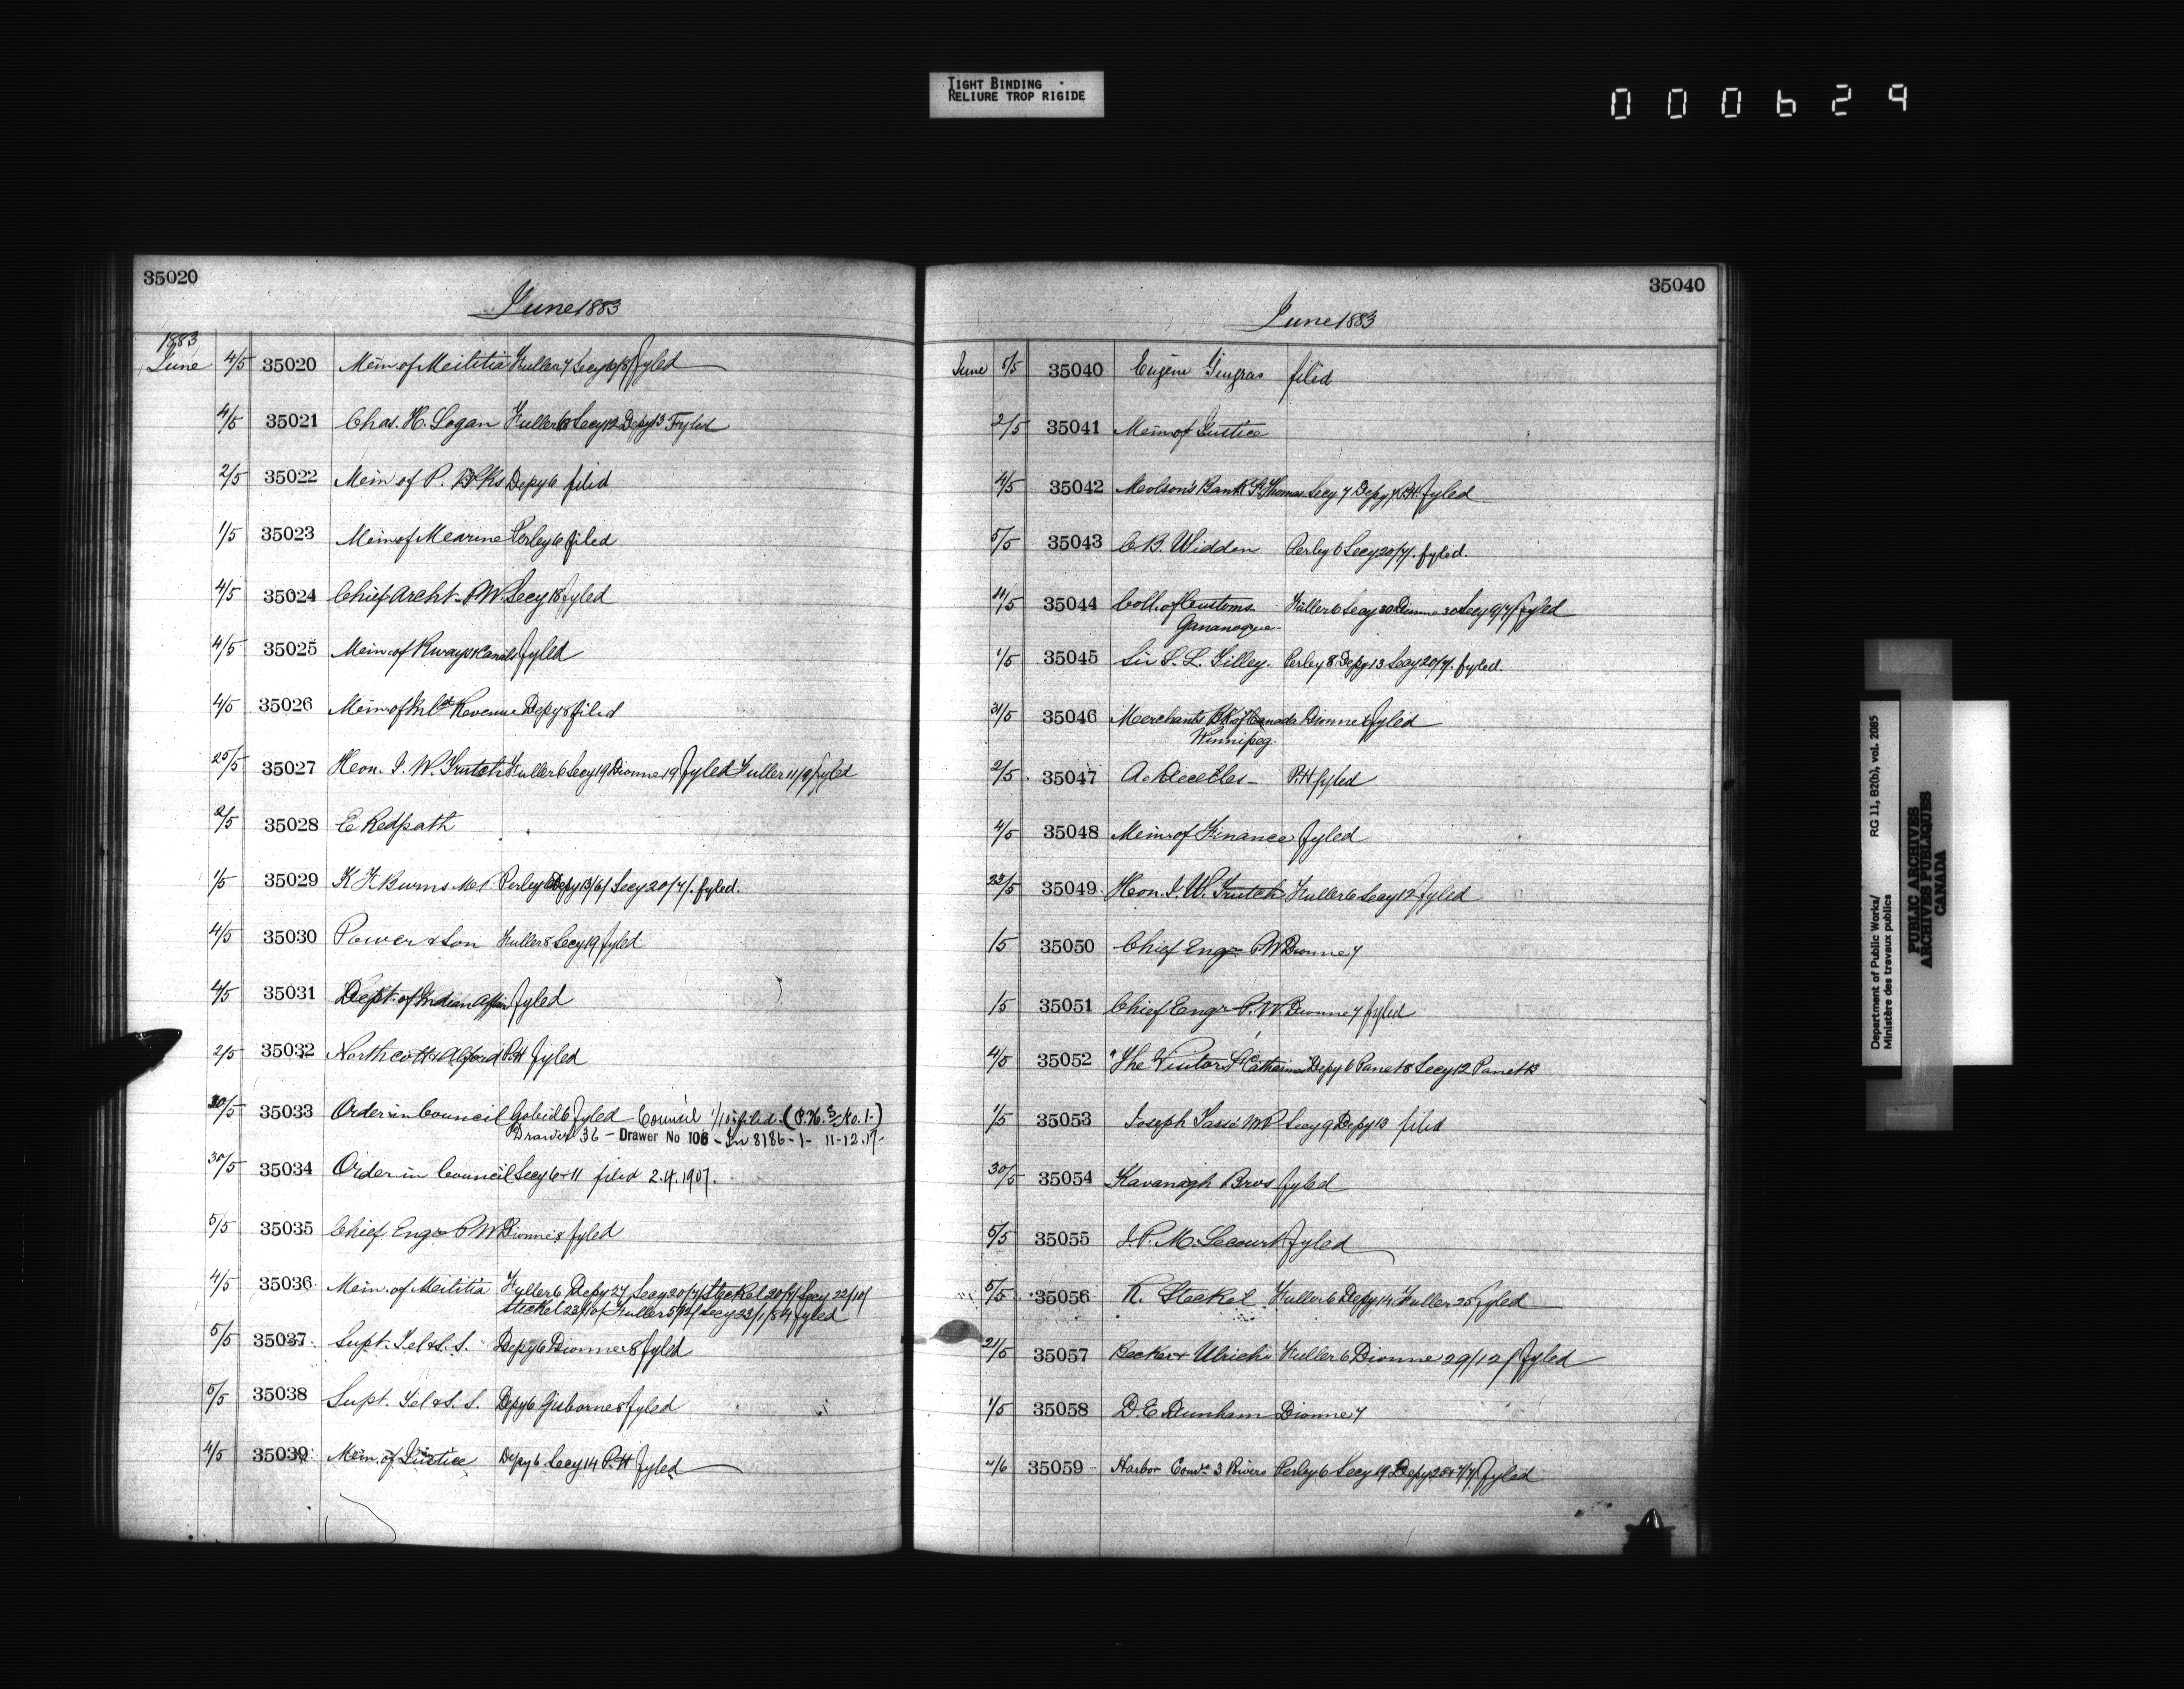 TIGHT BINDING
RELIURE TROP RIGIDE
000629
35020
June 1883
1883
June 4/5 35020 Mein. of Meilitia Fuller 7 Secy fyled
4/5 35021 Chas. H. Logan Fuller Secy 12 Depy 13 Fyled
2/5 35022 Mein of P. Depy 6 filed
1/5 35023 Mein of Mearine Perley 6 filed
4/5 35024 Chief Archt P.W. Secy 18 fyled
4/5 35025 Mein. of Rways & Canals fyled
4/5 35026 Mein. of Revenue Depy 8 filed
25/5 35027 Heon. J. W. Trutch Fuller 6 Secy 19 Dionne 19 fyled Fuller 11/9/ fyled
2/5 35028 E Redpath
1/5 35029 K F Burns M.P. Perley 6 Depy 13/6/ Secy 20/7/. fyled.
4/5 35030 Power & Son Fuller 8 Secy 19 fyled
4/5 35031 Dept. of Indian Affair fyled
2/5 35032 Northcott & Alford P.H fyled
30/5 35033 Order in Council Gobeil 6 fyled Council filed. (P.H. No. 1.)
Drawer 36 - Drawer No 106 - In 8186-1- 11-12.17-
30/5 35034 Order in Council Secy 6 & 11 filed 2.4.1907.
5/5 35035 Chief Engr P W Dionne 8 fyled
4/5 35036 Mein. of Meilitia Fuller 6 Depy 27 Secy 20/7/ Steckel 20/7/ Secy 22/10/
Steckel 23/10/ Fuller 5/12/ Secy 23/1/84 fyled
5/5 35037 Supt. Tel & S. S. Depy 6 Dionne 8 fyled
5/5 35038 Supt. Tel & S. S. Depy 6 Gisborne 8 fyled
4/5 35039 Mein. of Justice Depy 6 Secy 14 P.H fyled
35040
June 1883
June 5/5 35040 Eugène Gingras filed
2/5 35041 Mein of Justice
4/5 35042 Meolson's Bank St Thomas Secy 7 Depy 7 P.H. fyled
5/5 35043 C B. Widden Perley 6 Secy 20/7/. fyled.
35044 Coll. of Customs Fuller 6 Secy 30 Dionne 30 Secy 9/7/ fyled
Gananoque
1/5 35045 Sir S. L. Tilley. Perley 8 Depy 13 Secy 20/7/. fyled.
31/5 35046 Merchants Bk of Canada Dionne 8 fyled
Winnipeg.
2/5 35047 A. P.H fyled
4/5 35048 Mein. of Finance fyled
23/5 35049 Heon. J. W. Trutch Fuller 6 Secy 12 fyled
1/5 35050 Chief Engr P W Dionne 7
1/5 35051 Chief Engr P. W. Dionne 7 fyled
4/5 35052 "The Visitor St Catharines Depy 6 Panet 8 Secy 12 Panet 13
1/5 35053 Joseph Tassé M P Secy 9 Depy 13 filed
30/5 35054 Kavanagh Bros fyled
5/5 35055 J. P. M. Lecourt fyled
5/5 35056 R. Steckel Fuller 6 Depy 14 Fuller 25 fyled
2/5 35057 Becker & Ulrich Fuller 6 Dionne 29/12/ fyled
1/5 35058 D. E. Dunham Dionne 7
35059 Harbor Comrs 3 Rivers Perley 6 Secy 19 Depy fyled
Department of Public Works/
Ministère des travaux publics
RG 11, B2(b), vol. 2085
PUBLIC ARCHIVES
ARCHIVES PUBLIQUES
CANADA